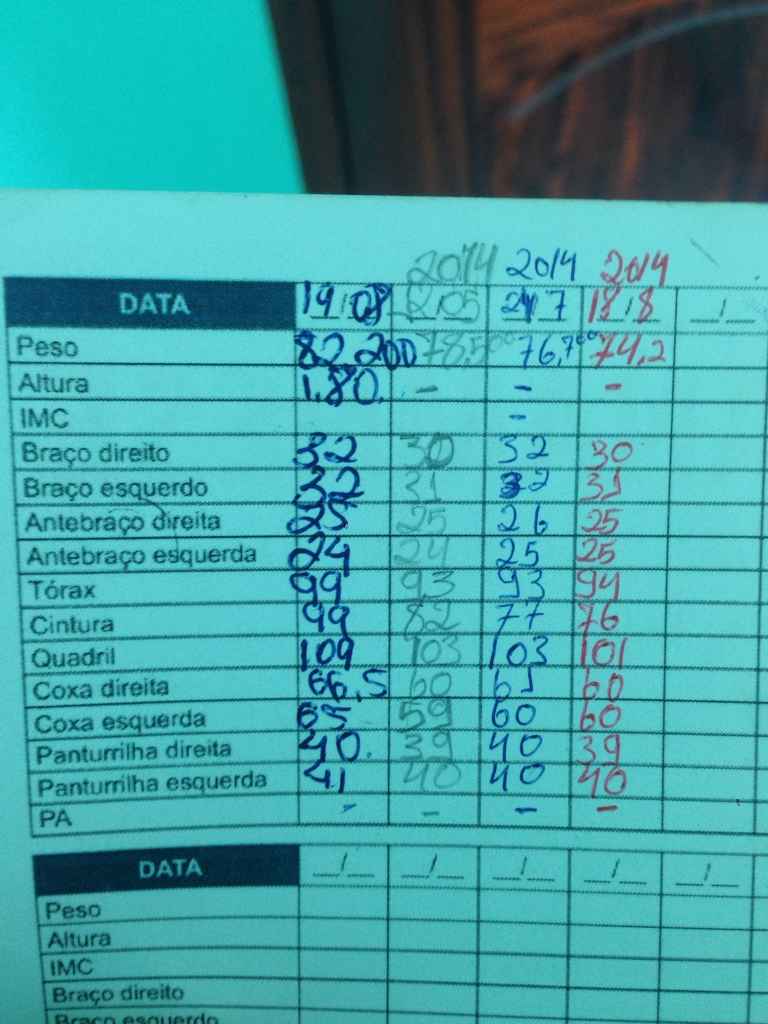 2014 2014 2014
DATA 19/08 12/05 24/7 18/8 __/__
Peso 82,200 78,500 76,700 74,2
Altura 1.80. - - -
IMC -
Braço direito 32 30 32 30
Braço esquerdo 32 31 32 31
Antebraço direita 25 25 26 25
Antebraço esquerda 24 24 25 25
Tórax 99 93 93 94
Cintura 99 82 77 76
Quadril 109 103 103 101
Coxa direita 66,5 60 61 60
Coxa esquerda 65 59 60 60
Panturrilha direita 40. 39 40 39
Panturrilha esquerda 41 40 40 40
PA - - - -
DATA __/__ __/__ __/__ __/__ __/__
Peso
Altura
IMC
Braço direito
Braço esquerdo